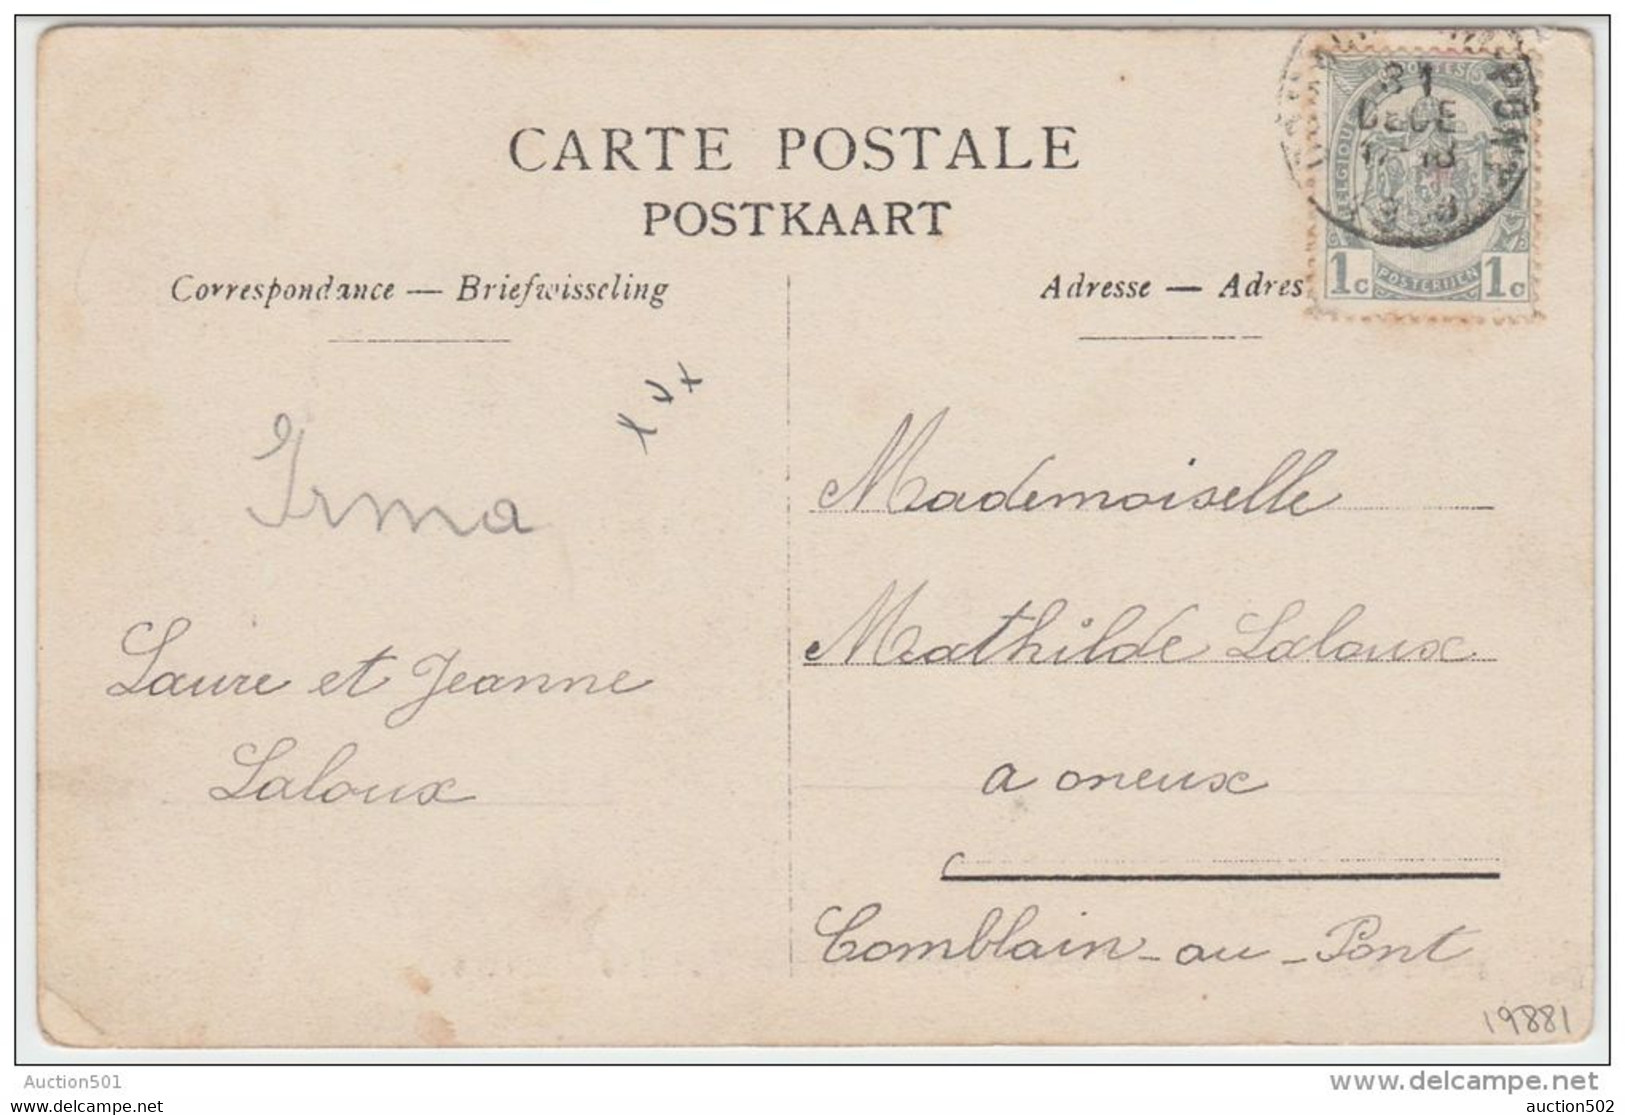 CARTE POSTALE
POSTKAART
Correspondance — Briefwisseling
Adresse — Adres
POSTES
BELGIQUE
31
DECE
PONT
1c POSTERIJEN 1c
x v x
Irma
Laure et Jeanne
Laloux
Mademoiselle
Mathilde Laloux
a oneux
Comblain-au-Pont
19881
Auction501
www.delcampe.net
posthistory.be
auction502